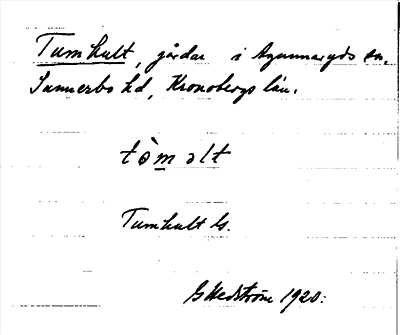 Tumhult, gårdar i Agunnaryds sn.
Sunnerbo hd, Kronobergs län.
tòmalt
Tumhult ls.
G Hedström 1920.